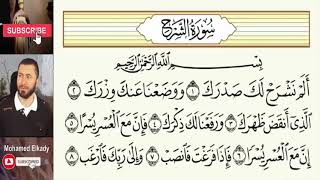 SUBSCRIBE
Mohamed Elkady
SUBSCRIBE
سُورَةُ الشَّرْحِ
بِسْمِ اللَّهِ الرَّحْمَٰنِ الرَّحِيمِ
أَلَمْ نَشْرَحْ لَكَ صَدْرَكَ ١ وَوَضَعْنَا عَنكَ وِزْرَكَ ٢
الَّذِي أَنقَضَ ظَهْرَكَ ٣ وَرَفَعْنَا لَكَ ذِكْرَكَ ٤ فَإِنَّ مَعَ الْعُسْرِ يُسْرًا ٥
إِنَّ مَعَ الْعُسْرِ يُسْرًا ٦ فَإِذَا فَرَغْتَ فَانصَبْ ٧ وَإِلَىٰ رَبِّكَ فَارْغَب ٨